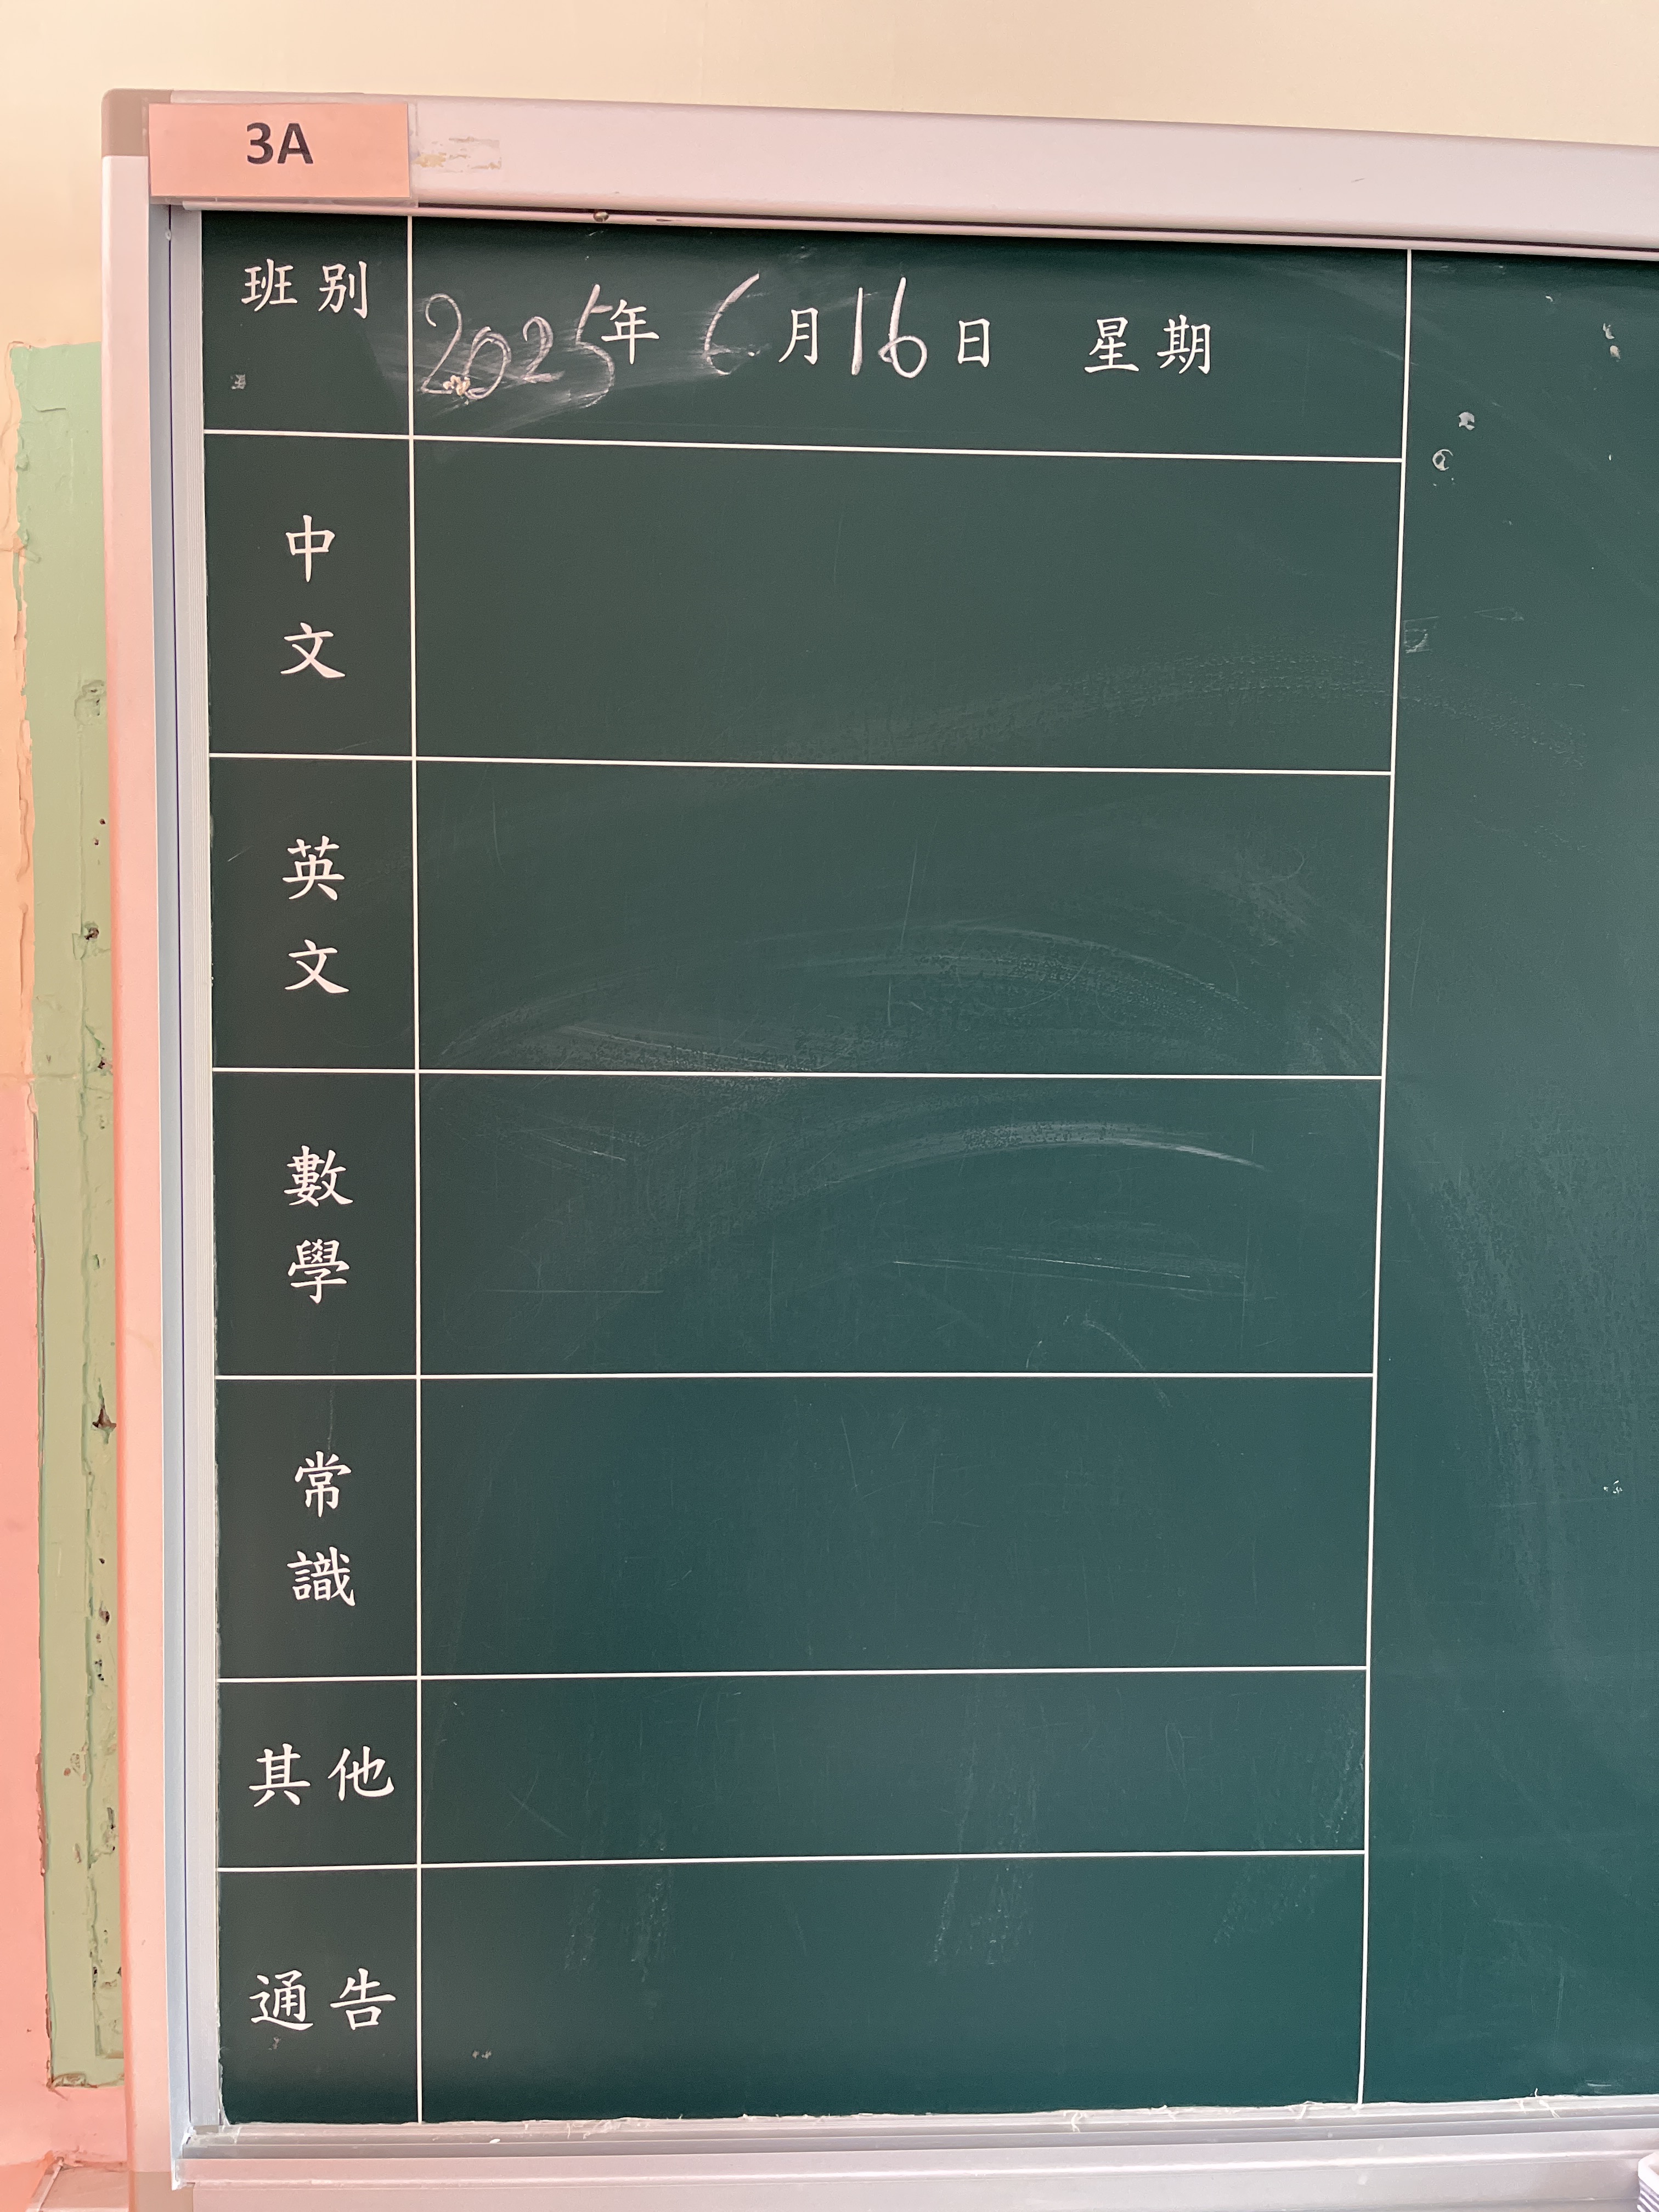 3A
班別
2025年 6月16日 星期
中文
英文
數學
常識
其他
通告